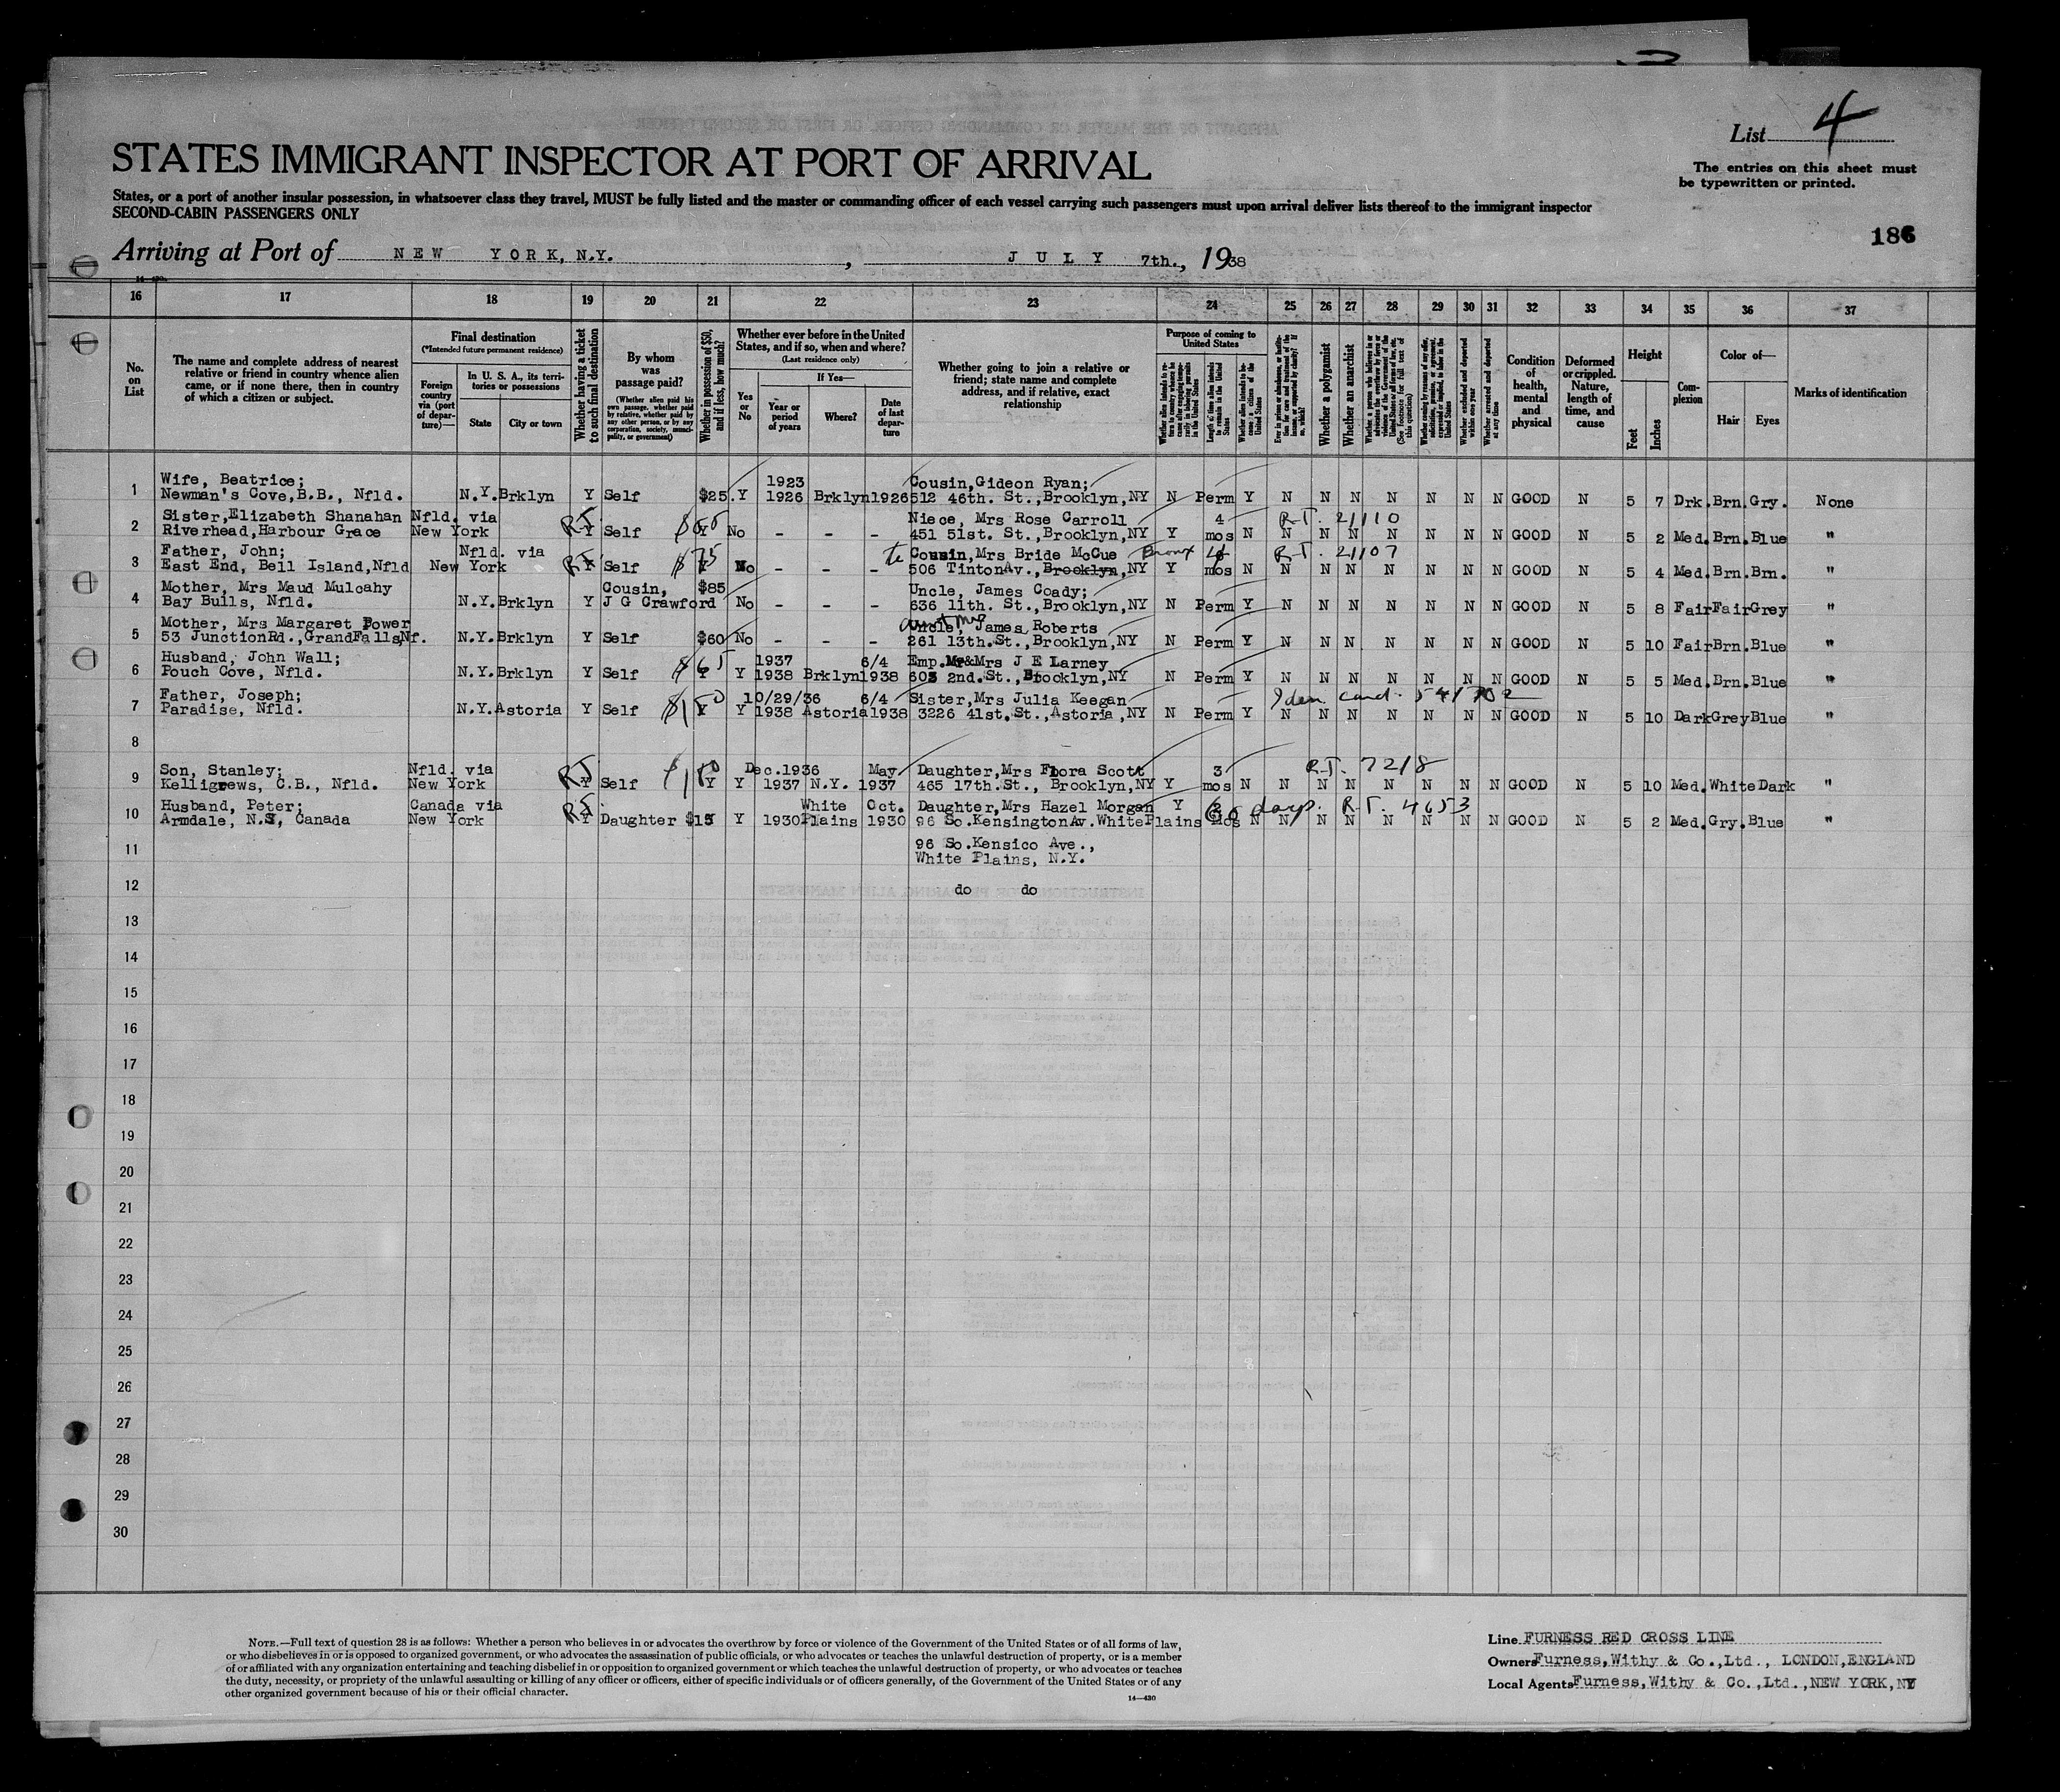 List 4
STATES IMMIGRANT INSPECTOR AT PORT OF ARRIVAL
The entries on this sheet must
be typewritten or printed.
States, or a port of another insular possession, in whatsoever class they travel, MUST be fully listed and the master or commanding officer of each vessel carrying such passengers must upon arrival deliver lists thereof to the immigrant inspector
SECOND-CABIN PASSENGERS ONLY
186
Arriving at Port of NEW YORK, N.Y., JULY 7th., 1938
16 17 18 19 20 21 22 23 24 25 26 27 28 29 30 31 32 33 34 35 36 37
No. on List
The name and complete address of nearest relative or friend in country whence alien came, or if none there, then in country of which a citizen or subject.
Final destination
(*Intended future permanent residence)
Foreign country via (port of departure)—
In U. S. A., its territories or possessions
State
City or town
Whether having a ticket to such final destination
By whom was passage paid?
(Whether alien paid his own passage, whether paid by relative, whether paid by any other person, or by any corporation, society, municipality, or government)
Whether in possession of $50, and if less, how much?
Whether ever before in the United States, and if so, when and where?
(Last residence only)
Yes or No
If Yes—
Year or period of years
Where?
Date of last departure
Whether going to join a relative or friend; state name and complete address, and if relative, exact relationship
Purpose of coming to United States
Length of time alien intends to remain in the United States
Whether alien intends to become a citizen of the United States
Whether a polygamist
Whether an anarchist
Whether excluded and deported within one year
Whether arrested and deported at any time
Condition of health, mental and physical
Deformed or crippled. Nature, length of time, and cause
Height
Feet
Inches
Complexion
Color of—
Hair
Eyes
Marks of identification
1 Wife, Beatrice; 1923 Cousin, Gideon Ryan;
Newman's Cove, B.B., Nfld. N.Y. Brklyn Y Self $25. Y 1926 Brklyn 1926 512 46th. St., Brooklyn, NY N Perm Y N N N N N N N GOOD N 5 7 Drk. Brn. Gry. None
2 Sister, Elizabeth Shanahan Nfld. via RT Niece, Mrs Rose Carroll 4 R.T. 21110
Riverhead, Harbour Grace New York Y Self Y No - - - 451 51st. St., Brooklyn, NY Y mos N N N N N N N N GOOD N 5 2 Med. Brn. Blue "
3 Father, John; Nfld. via RT $75 to Cousin, Mrs Bride McCue Bronx 4 R.T. 21107
East End, Bell Island, Nfld New York Y Self Y No - - - 506 Tinton Av., Brooklyn, NY Y mos N N N N N N N N GOOD N 5 4 Med. Brn. Brn. "
4 Mother, Mrs Maud Mulcahy Cousin, $85 Uncle, James Coady;
Bay Bulls, Nfld. N.Y. Brklyn Y J G Crawford No - - - 636 11th. St., Brooklyn, NY N Perm Y N N N N N N N GOOD N 5 8 Fair Fair Grey "
5 Mother, Mrs Margaret Power Aunt Mrs Uncle, James Roberts
53 Junction Rd., Grand Falls, Nf. N.Y. Brklyn Y Self $60 No - - - 261 13th. St., Brooklyn, NY N Perm Y N N N N N N N GOOD N 5 10 Fair Brn. Blue "
6 Husband, John Wall; $65 1937 6/4 Emp. Mr&Mrs J E Larney
Pouch Cove, Nfld. N.Y. Brklyn Y Self Y Y 1938 Brklyn 1938 603 2nd. St., Brooklyn, NY N Perm Y N N N N N N N GOOD N 5 5 Med. Brn. Blue "
7 Father, Joseph; $150 10/29/36 6/4 Sister, Mrs Julia Keegan Iden. card.
Paradise, Nfld. N.Y. Astoria Y Self Y Y 1938 Astoria 1938 3226 41st. St., Astoria, NY N Perm Y N N N N N N N GOOD N 5 10 Dark Grey Blue "
8
9 Son, Stanley; Nfld. via RT $150 Dec. 1936 May Daughter, Mrs Flora Scott 3 R.T. 7218
Kelligrews, C.B., Nfld. New York Y Self Y Y 1937 N.Y. 1937 465 17th. St., Brooklyn, NY Y mos N N N N N N N N GOOD N 5 10 Med. White Dark "
10 Husband, Peter; Canada via RT White Oct. Daughter, Mrs Hazel Morgan Y 60 days. R.T. 4653
Armdale, N.S, Canada New York Y Daughter $15 Y 1930 Plains 1930 96 So. Kensington Av. White Plains mos N N N N N N N N GOOD N 5 2 Med. Gry. Blue "
11 96 So. Kensico Ave.,
White Plains, N.Y.
12 do do
13
14
15
16
17
18
19
20
21
22
23
24
25
26
27
28
29
30
NOTE.—Full text of question 28 is as follows: Whether a person who believes in or advocates the overthrow by force or violence of the Government of the United States or of all forms of law,
or who disbelieves in or is opposed to organized government, or who advocates the assassination of public officials, or who advocates or teaches the unlawful destruction of property, or is a member
of or affiliated with any organization entertaining and teaching disbelief in or opposition to organized government or which teaches the unlawful destruction of property, or who advocates or teaches
the duty, necessity, or propriety of the unlawful assaulting or killing of any officer or officers, either of specific individuals or of officers generally, of the Government of the United States or of any
other organized government because of his or their official character.
14—430
Line FURNESS RED CROSS LINE
Owners Furness, Withy & Co., Ltd., LONDON, ENGLAND
Local Agents Furness, Withy & Co., Ltd., NEW YORK, NY